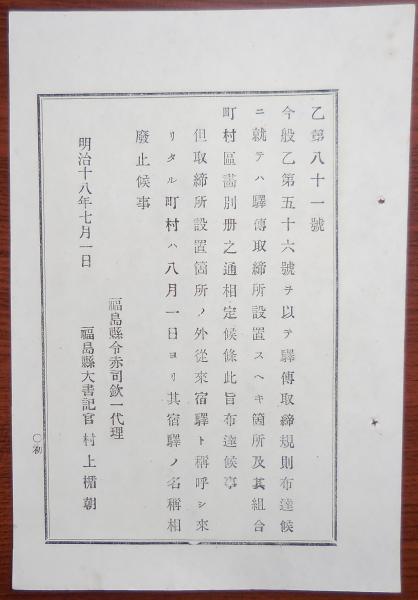 乙第八十一號
今般乙第五十六號ヲ以テ驛傳取締規則布達候
ニ就テハ驛傳取締所設置スヘキ箇所及其組合
町村區畵別册之通相定候條此旨布達候事
但取締所設置箇所ノ外從來宿驛ト稱呼シ來
リタル町村ハ八月一日ヨリ其宿驛ノ名稱相
廢止候事
明治十八年七月一日
福島縣令赤司欽一代理
福島縣大書記官 村上楯朝
〇初